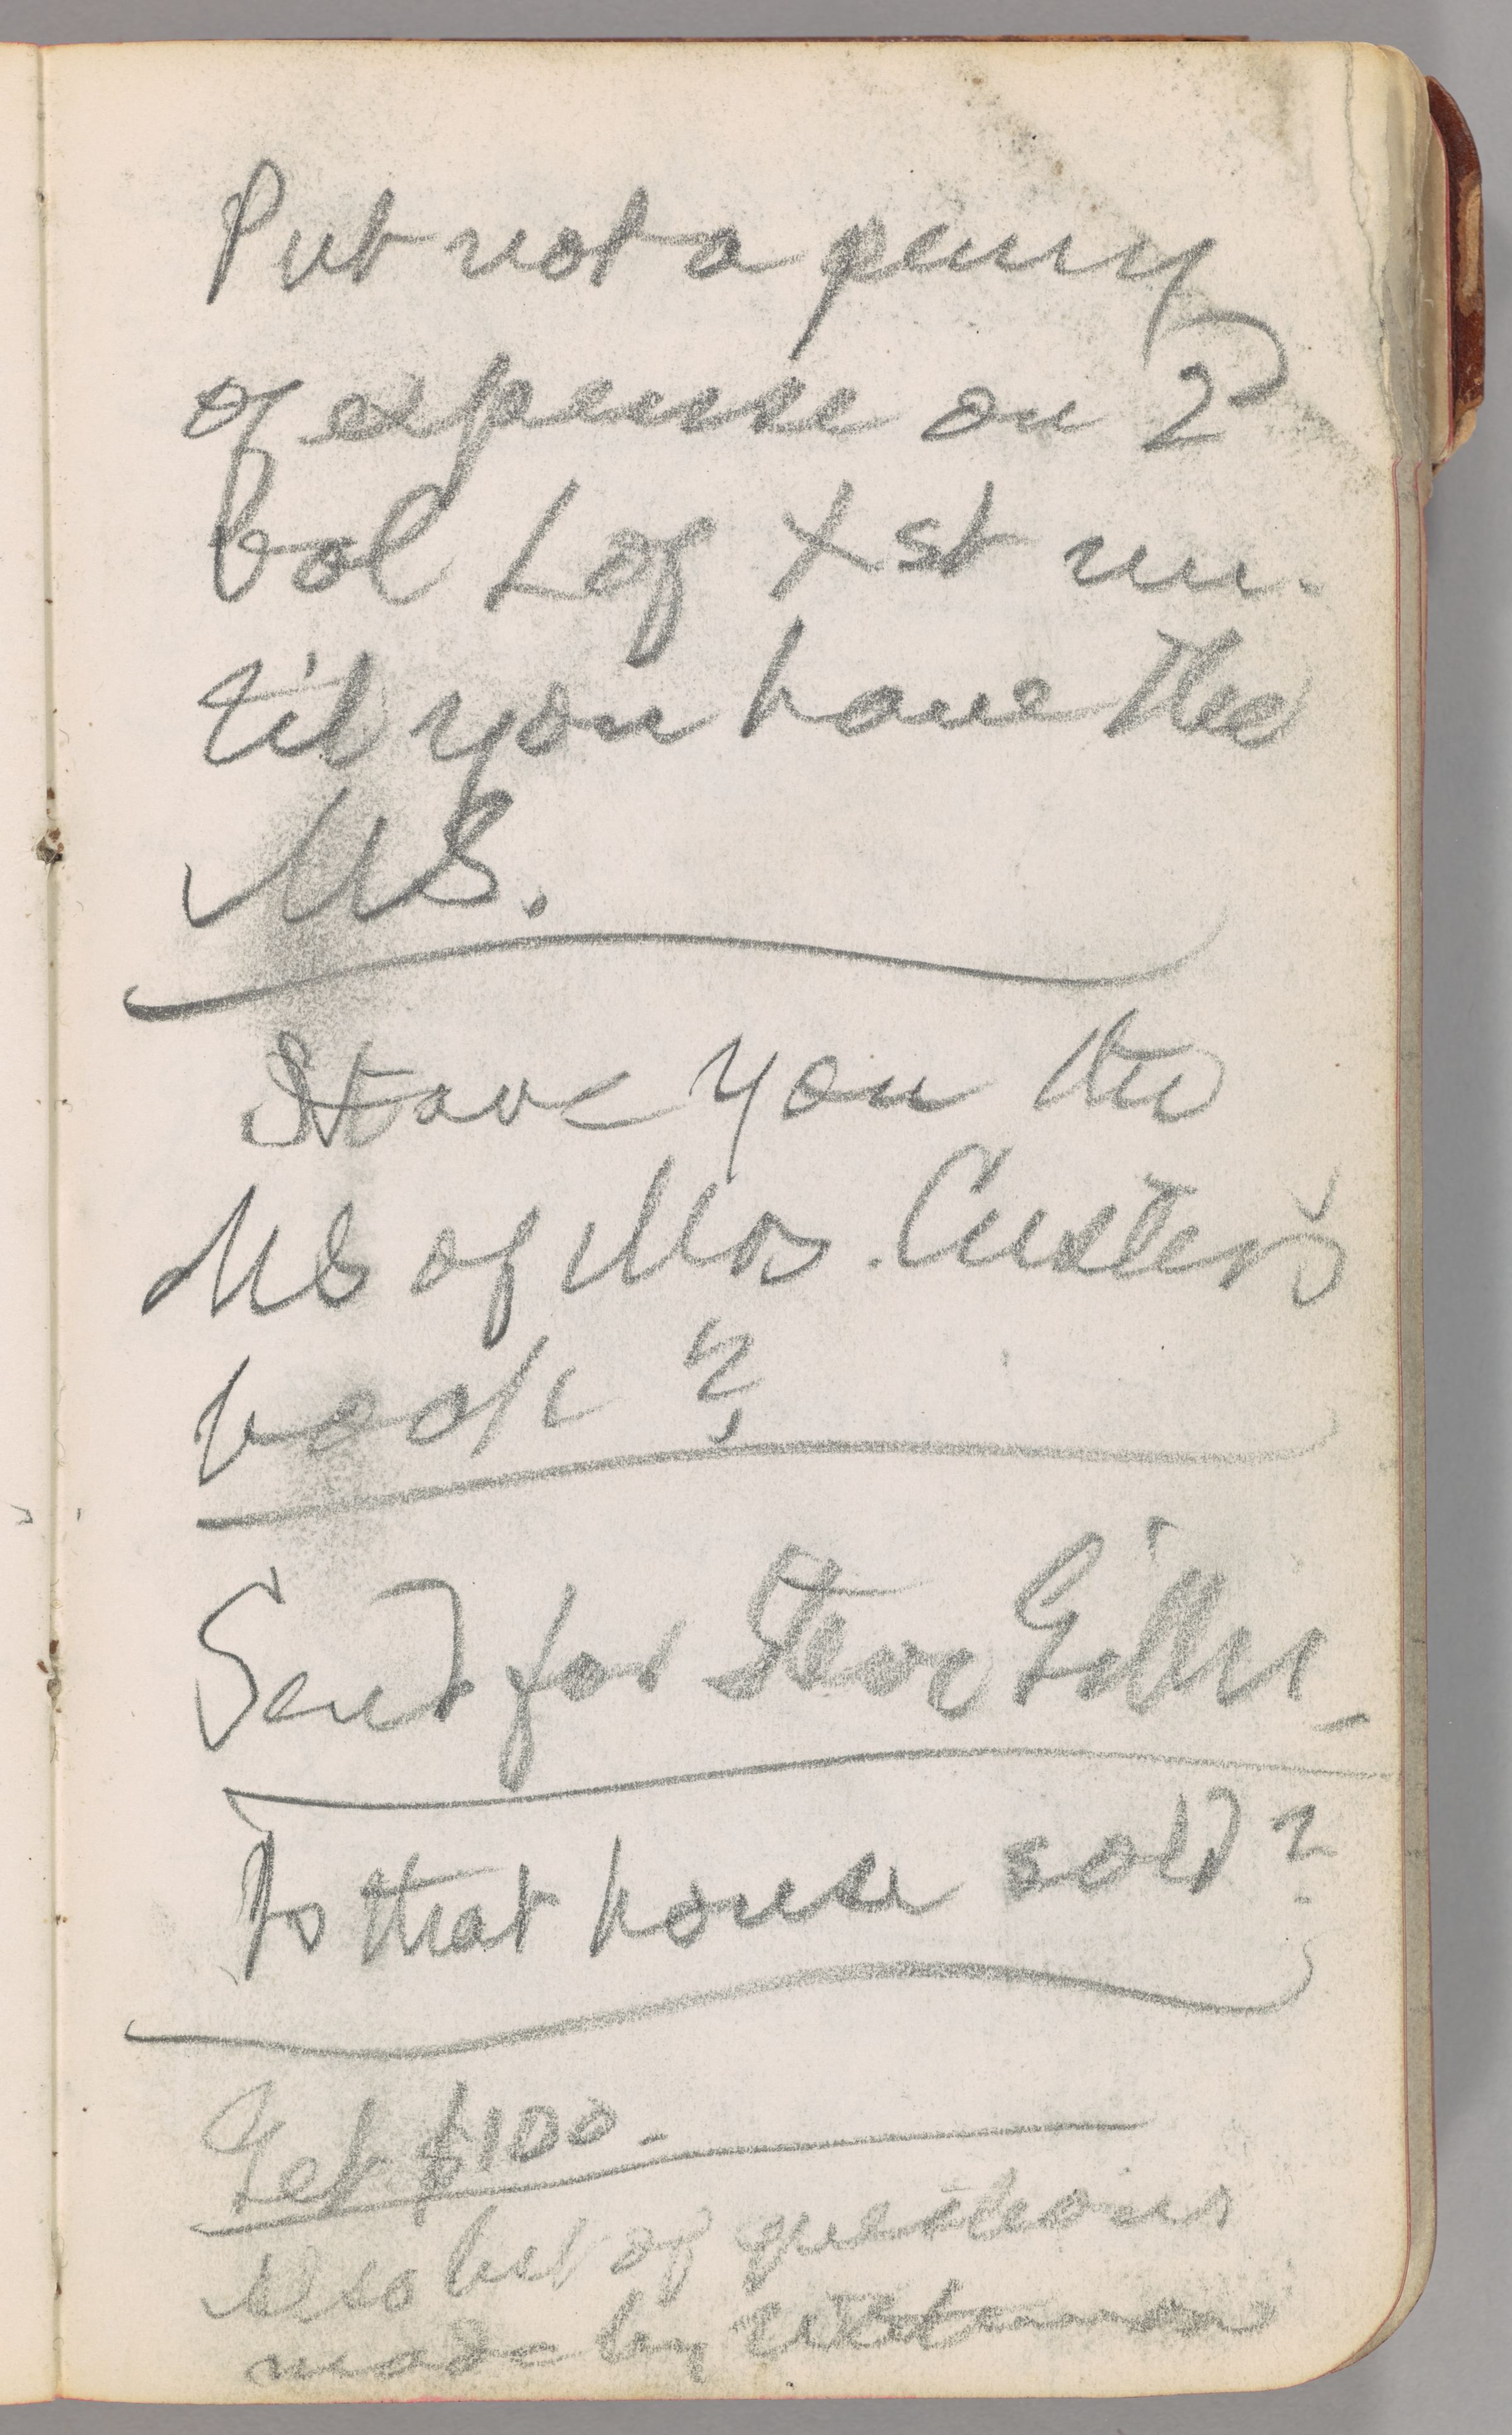 Put not a penny
of expense on 2d
vol L of Xst un-
til you have the
MS.
Have you the
MS of Mrs. Custer's
book?
Send for Steve Gillis
Is that house sold?
Get $100.
list of questions
made by